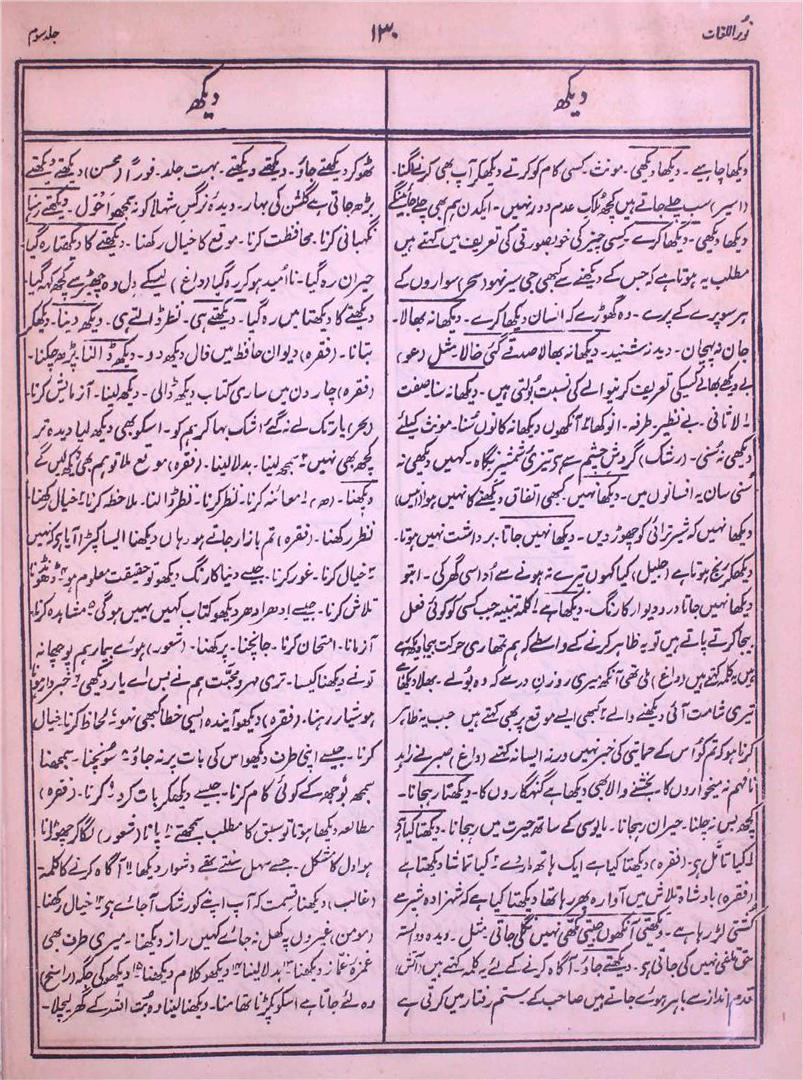 نور اللغات
۱۳۰
جلد سوم
دیکھ
دیکھا چاہیے ۔ دیکھا دیکھی ۔ مونث ۔ کسی کام کو کرتے دیکھکر آپ بھی کرنے لگنا ۔
(اسیر) سب چلے جاتے ہیں کچھ ملک عدم دور نہیں ۔ ایکدن ہم بھی چلے جائینگے
دیکھا دیکھی ۔ دیکھا کرے ۔ کسی چیز کی خوبصورتی کی تعریف میں کہتے ہیں
مطلب یہ ہوتا ہے کہ جس کے دیکھنے سے کبھی جی سیر نہو (سحر) سواروں کے
ہر سو پرے کے پرے ۔ وہ گھوڑے کہ انسان دیکھا کرے ۔ دیکھا نہ بھالا ۔
جان نہ پہچان ۔ دید نہ شنید ۔ دیکھا نہ بھالا صدقے گئی خالا ۔ مثل (عو)
بے دیکھے بھالے کسی کی تعریف کرنیوالے کی نسبت بولتی ہیں ۔ دیکھا نہ سنا صفت
۱ لاثانی ۔ بے نظیر ۔ طرفہ ۔ انوکھا ۲ آنکھوں دیکھا نہ کانوں سنا ۔ مونث کیلئے
دیکھی نہ سنی ۔ (رشک) گردش چشم سے ہے تیزی شمشیر نگاہ ۔ کہیں دیکھی نہ
سنی سان یہ افسانوں میں ۔ دیکھا نہیں کبھی اتفاق دیکھنے کا نہیں ہوا (انیس)
دیکھا نہیں کہ شیر ترائی کو چھوڑ دیں ۔ دیکھا نہیں جاتا ۔ برداشت نہیں ہوتا ۔
دیکھکر رنج ہوتا ہے (جلیل) کیا کہوں تیرے نہ ہونے سے اُداسی گھر کی ۔ اب تو
دیکھا نہیں جاتا در و دیوار کا رنگ ۔ دیکھا ہے ۱ کلمہ تنبیہ جب کسی کو کوئی فعل
بیجا کرتے پاتے ہیں تو یہ ظاہر کرنے کے واسطے کہ ہم تمھاری حرکت بیجا دیکھ رہے
ہیں یہ کلمہ کہتے ہیں (داغ) لی تھی آنکھ میری روزن در سے کہ وہ بولے ۔ بھلا دیکھا ہے
تیری شامت آئی دیکھنے والے ۲ کبھی ایسے موقع پر بھی کہتے ہیں جب یہ ظاہر
کرنا ہو کہ تم کو اُس کے حمایتی کی خبر نہیں ورنہ ایسا نہ کہتے (داغ) صبر لے زاہد
نافہم نہ میخواروں کا ۔ بخشنے والا بھی دیکھا ہے گنہگاروں کا ۔ دیکھتا رہجانا ۔
کچھ بس نہ چلنا ۔ حیران رہجانا ۔ مایوسی کے ساتھ حیرت میں رہجانا ۔ دیکھتا کیا ہے
۱ کیا تامل ہے ۔ (فقرہ) دیکھتا کیا ہے ایک ہاتھ مار دے ۲ کیا تماشا دیکھتا ہے
(فقرہ) بادشاہ تلاش میں آوارہ پھر رہا تھا دیکھتا کیا ہے کہ شہزادہ شیر سے
کشتی لڑ رہا ہے ۔ دیکھتی آنکھوں جیتی مکھی نہیں نگلی جاتی ۔ مثل ۔ دیدہ و دانستہ
حق تلفی نہیں کی جاتی ہے ۔ دیکھتے جاؤ ۔ آگاہ کرنے کے لئے یہ کلمہ کہتے ہیں (آتش)
قدم انداز سے باہر ہوئے جاتے ہیں صاحب کے ۔ ستم رفتار میں کرتی ہے
دیکھ
ٹھوکر دیکھتے جاؤ ۔ دیکھتے دیکھتے ۔ بہت جلد ۔ فوراً (محسن) دیکھتے دیکھتے
بڑھ جاتی ہے گلشن کی بہار ۔ دیدۂ نرگس شہلا کو نہ سمجھو احول ۔ دیکھتے رہنا
نگہبانی کرنا ۔ محافظت کرنا ۔ موقع کا خیال رکھنا ۔ دیکھتے کا دیکھتا رہ گیا ۔
حیران رہ گیا ۔ ناامید ہو کر رہ گیا (داغ) لیکے دل وہ چھیڑ سے کچھ کہہ گیا ۔
دیکھتے کا دیکھتا میں رہ گیا ۔ دیکھتے ہی ۔ نظر ڈالتے ہی ۔ دیکھ دینا ۔ دیکھکر
بتانا ۔ (فقرہ) دیوان حافظ میں فال دیکھ دو ۔ دیکھ ڈالنا ۔ پڑھ چکنا ۔
(فقرہ) چار دن میں ساری کتاب دیکھ ڈالی ۔ دیکھ لینا ۔ آزمائش کرنا ۔
(بحر) یار تک لے نہ گئے اشک بہا کر ہم کو ۔ اسکو بھی دیکھ لیا دیدۂ تر
کچھ بھی نہیں ۲ سمجھ لینا ۔ بدلا لینا ۔ (فقرہ) موقع ملا تو ہم بھی دیکھ لیں گے
دیکھنا ۔ (ھ) ۱ معائنہ کرنا ۔ نظر کرنا ۔ نظر ڈالنا ۔ ملاحظہ کرنا ۲ خیال رکھنا ۔
نظر رکھنا ۔ (فقرہ) تم بازار جاتے ہو وہاں دیکھنا ایسا کپڑا آیا ہو کہ نہیں
۳ خیال کرنا ۔ غور کرنا ۔ جیسے دنیا کا رنگ دیکھو تو حقیقت معلوم ہو ۴ ڈھونڈنا
تلاش کرنا ۔ جیسے ادھر ادھر دیکھو کتاب کہیں یہیں ہوگی ۵ مشاہدہ کرنا ۔
آزمانا ۔ امتحان کرنا ۔ جانچنا ۔ پرکھنا ۔ (شعور) ہوئے بیمار ہم پوچھا نہ
تونے دیکھنا کیسا ۔ تری مہر و محبت ہم نے بس اے یار دیکھی ۶ خبردار ہونا
ہوشیار رہنا ۔ (فقرہ) دیکھو آیندہ ایسی خطا کبھی نہو ۷ لحاظ کرنا خیال
کرنا ۔ جیسے اپنی طرف دیکھو اس کی بات پر نہ جاؤ ۸ سونچنا ۔ سمجھنا
سمجھ بوجھ کے کوئی کام کرنا ۔ جیسے دیکھکر بات کرو ۹ کرنا ۔ (فقرہ)
مطالعہ دیکھا ہوتا تو سبق کا مطلب سمجھتے ۱۰ پانا (شعور) لگا کر چھوڑانا
ہو دل کا مشکل ۔ جسے سہل سنتے تھے دشوار دیکھا ۱۱ آگاہ کرنے کا کلمہ ۔
(غالب) دیکھنا قسمت کہ آپ اپنے کو رشک آ جائے ہے ۱۲ خیال رکھنا ۔
(مومن) غیروں پہ کھل نہ جائے کہیں راز دیکھنا ۔ میری طرف بھی
غمزۂ غماز دیکھنا ۔ ۱۳ بدلا لینا ۱۴ دیکھو کلام دیکھنا ۱۵ دیکھو کی جگہ (راسخ)
وہ لئے جاتا ہے اسکو پکڑنا تھامنا ۔ دیکھنا لینا وہ بت اللہ کے گھر لیچلا ۔